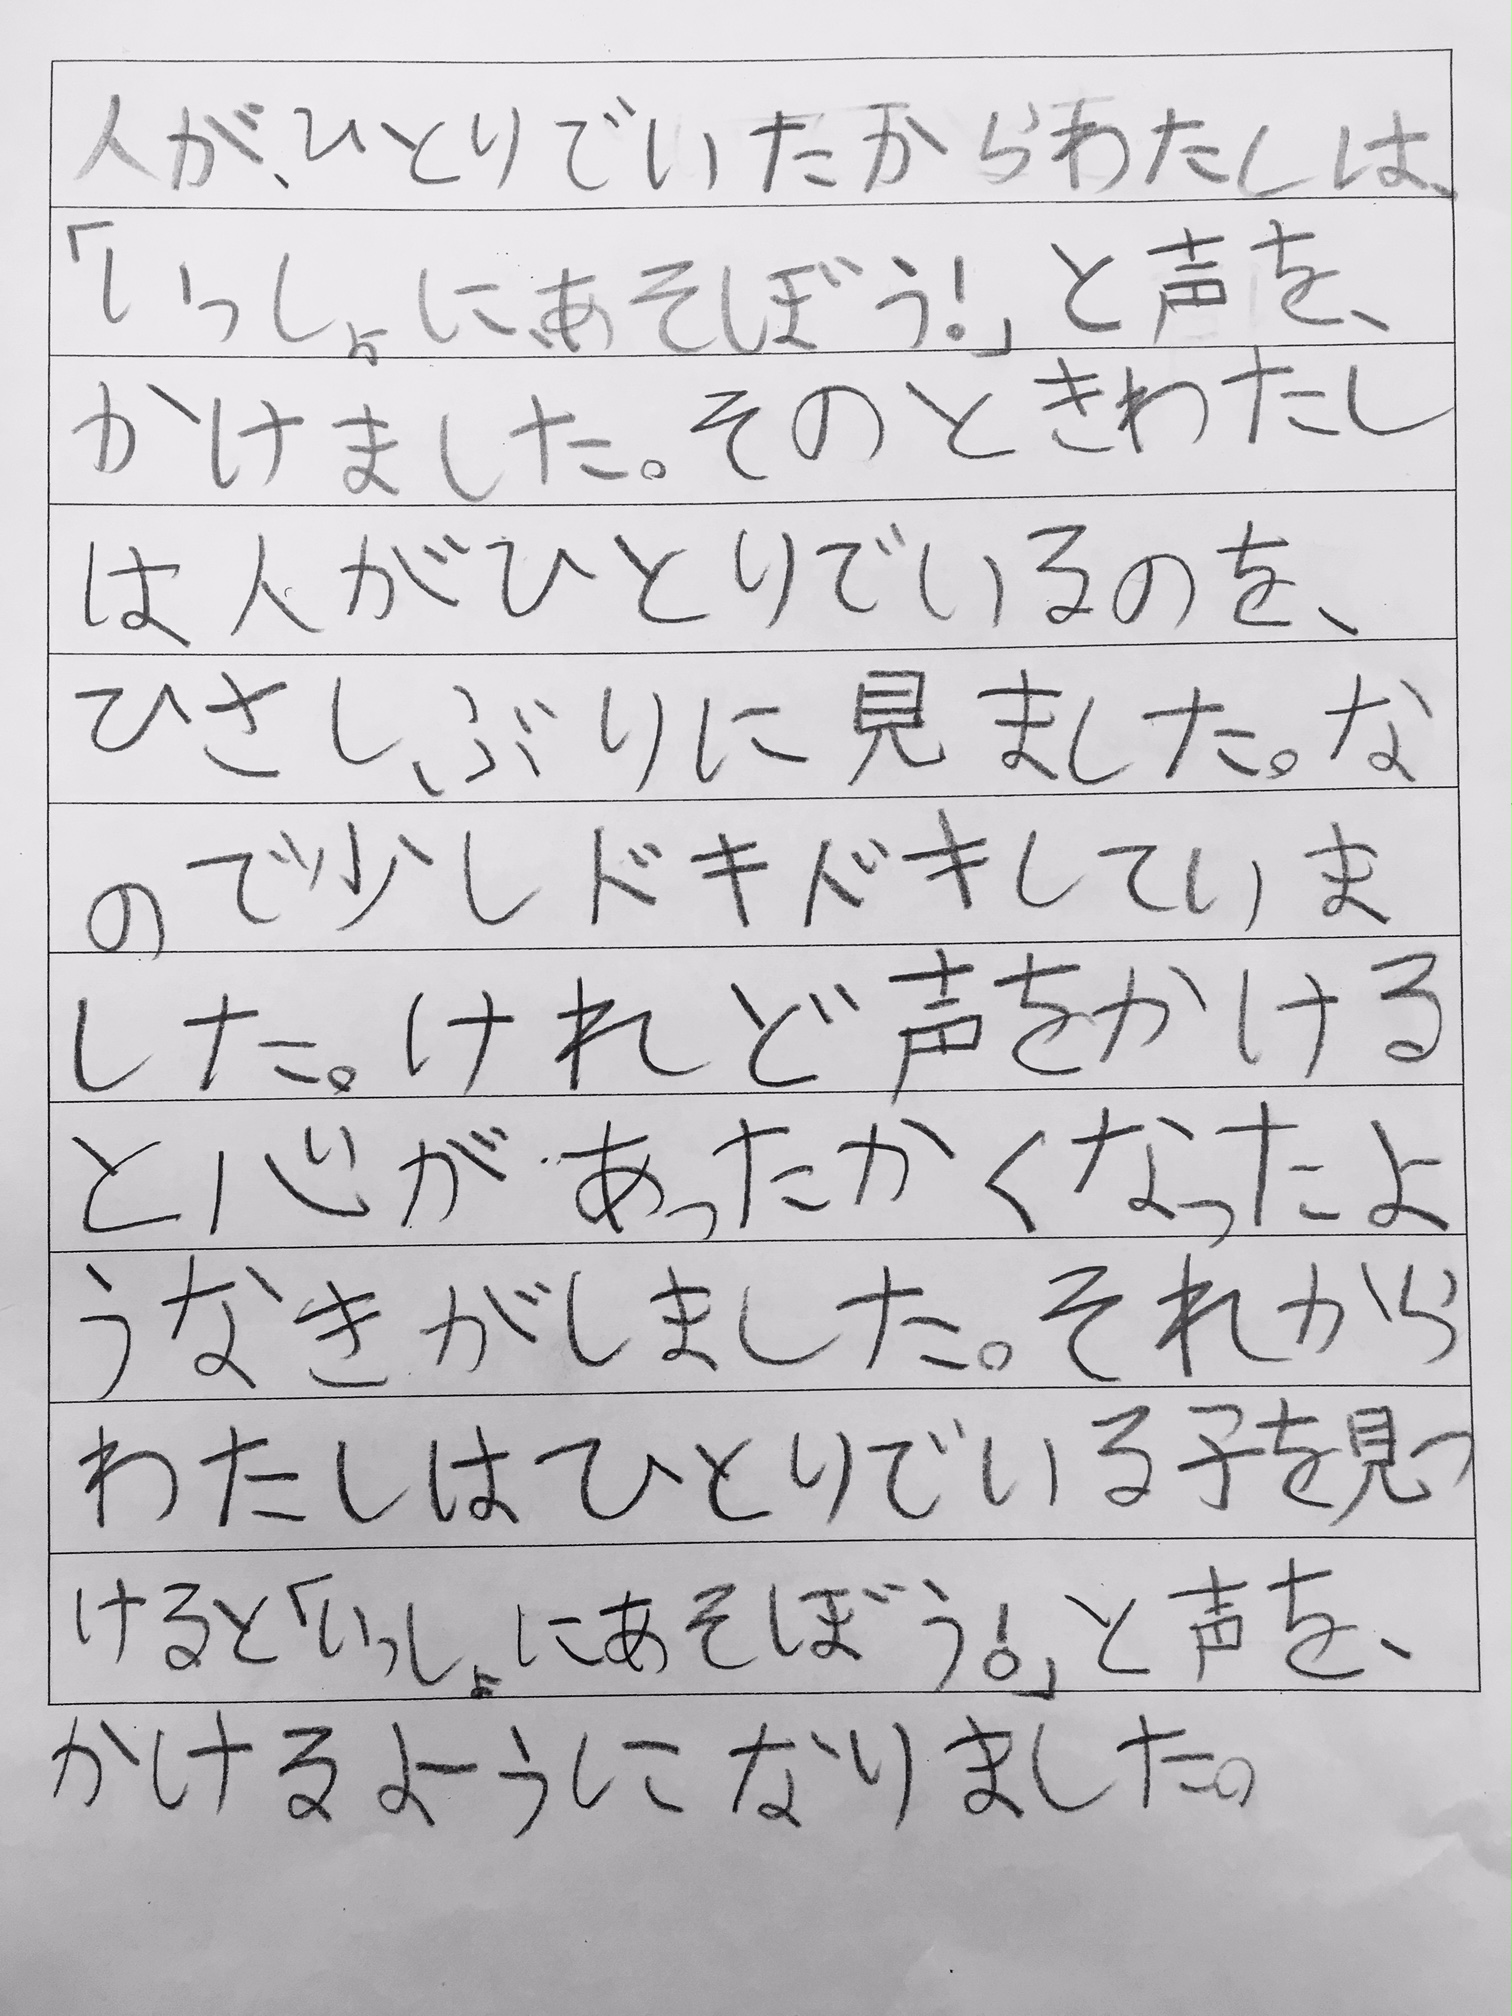 人が、ひとりでいたからわたしは、
「いっしょに、あそぼう!」と声を、
かけました。そのときわたし
は人がひとりでいるのを、
ひさし、ぶりに見ました。な
ので少しドキドキしていま
した。けれど声をかける
と心があったかくなったよ
うなきがしました。それから
わたしはひとりでいる子を見つ
けると「いっしょにあそぼう!」と声を、
かけるようになりました。